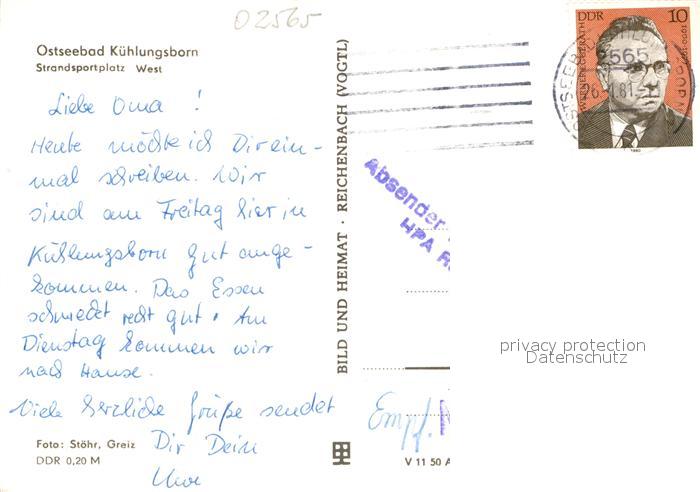 02565
Ostseebad Kühlungsborn
Strandsportplatz West
Liebe Oma !
Heute möchte ich Dir ein-
mal schreiben. Wir
sind am Freitag hier in
Kühlungsborn gut ange-
kommen. Das Essen
schmeckt recht gut. Am
Dienstag kommen wir
nach Hause.
Viele herzliche Grüße sendet
Dir Dein
Uwe
Foto: Stöhr, Greiz
DDR 0,20 M
BILD UND HEIMAT · REICHENBACH (VOGTL)
V 11 50 A
Absender
HPA
Empf.
DDR 10
WERNER EGGERATH
1900-1977
1980
2565
OSTSEEBAD
81
privacy protection
Datenschutz